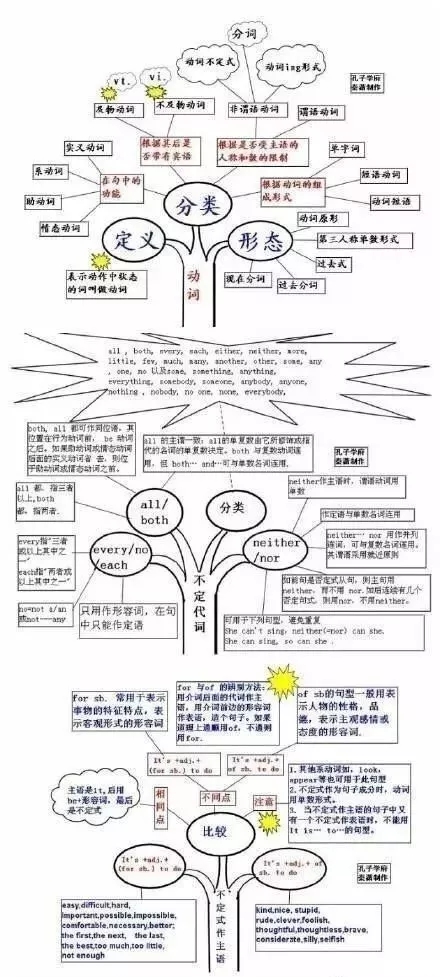 分词
动词不定式
动词ing形式
vt.
vi.
孔子学府
秦潞制作
及物动词
不及物动词
非谓语动词
谓语动词
实义动词
根据其后是
否带有宾语
根据是否受主语的
人称和数的限制
单字词
系动词
在句中的
功能
根据动词的组
成形式
短语动词
助动词
分类
动词短语
情态动词
动词原形
定义
形态
第三人称单数形式
过去式
表示动作中状态
的词叫做动词
动词
现在分词
过去分词
all , both, every, each, either, neither, more,
little, few, much, many, another, other, some, any
, one, no 以及some, something, anything,
everything, somebody, someone, anybody, anyone,
nothing , nobody, no one, none, everybody,
both, all 都可作同位语, 其
位置在行为动词前, be 动词
之后。如果助动词或情态动词
后面的实义动词省 去, 则位
于助动词或情态动词之前。
all 的主谓一致: all的单复数由它所修饰或指
代的名词的单复数决定。both 与复数动词连
用, 但 both… and…可与单数名词连用.
孔子学府
秦潞制作
all 都, 指三者
以上,both
都, 指两者.
all/
both
分类
neither作主语时, 谓语动词用
单数
作定语与单数名词连用
every指"三者
或以上其中之
一"
each指"两者或
以上其中之一"
every/no
/each
neither
/nor
neither… nor 用作并列
连词, 可与复数名词连用。
其谓语采用就近原则
如前句是否定式从句, 则主句用
neither, 而不用 nor.如后连续有几个
否定句式, 则用nor, 不用neither。
no=not a/an
或not---any
只用作形容词, 在句
中只能作定语
不定代词
可用于下列句型, 避免重复
She can't sing, neither(=nor) can she.
She can sing, so can she .
for sb. 常用于表示
事物的特征特点, 表
示客观形式的形容词
for 与of 的辨别方法:
用介词后面的代词作主
语, 用介词前边的形容词
作表语, 造个句子。如果
道理上通顺用of, 不通则
用for.
of sb的句型一般用表
示人物的性格, 品
德, 表示主观感情或
态度的形容词.
It's +adj.+
(for sb.) to do
It's +adj.+
of sb. to do
主语是it,后用
be+形容词, 最后
是不定式
相同点
不同点
注意
1.其他系动词如, look,
appear等也可用于此句型
2.不定式作为句子成分时, 动词
用单数形式。
3. 当不定式作主语的句子中又
有一个不定式作表语时, 不能用
It is… to…的句型。
比较
It's +adj.+
(for sb.) to do
It's +adj.+ of
sb. to do
孔子学府
秦潞制作
easy,difficult,hard,
important,possible,impossible,
comfortable,necessary,better;
the first,the next, the last,
the best,too much,too little,
not enough
不定式作主语
kind,nice, stupid,
rude,clever,foolish,
thoughtful,thoughtless,brave,
considerate,silly,selfish